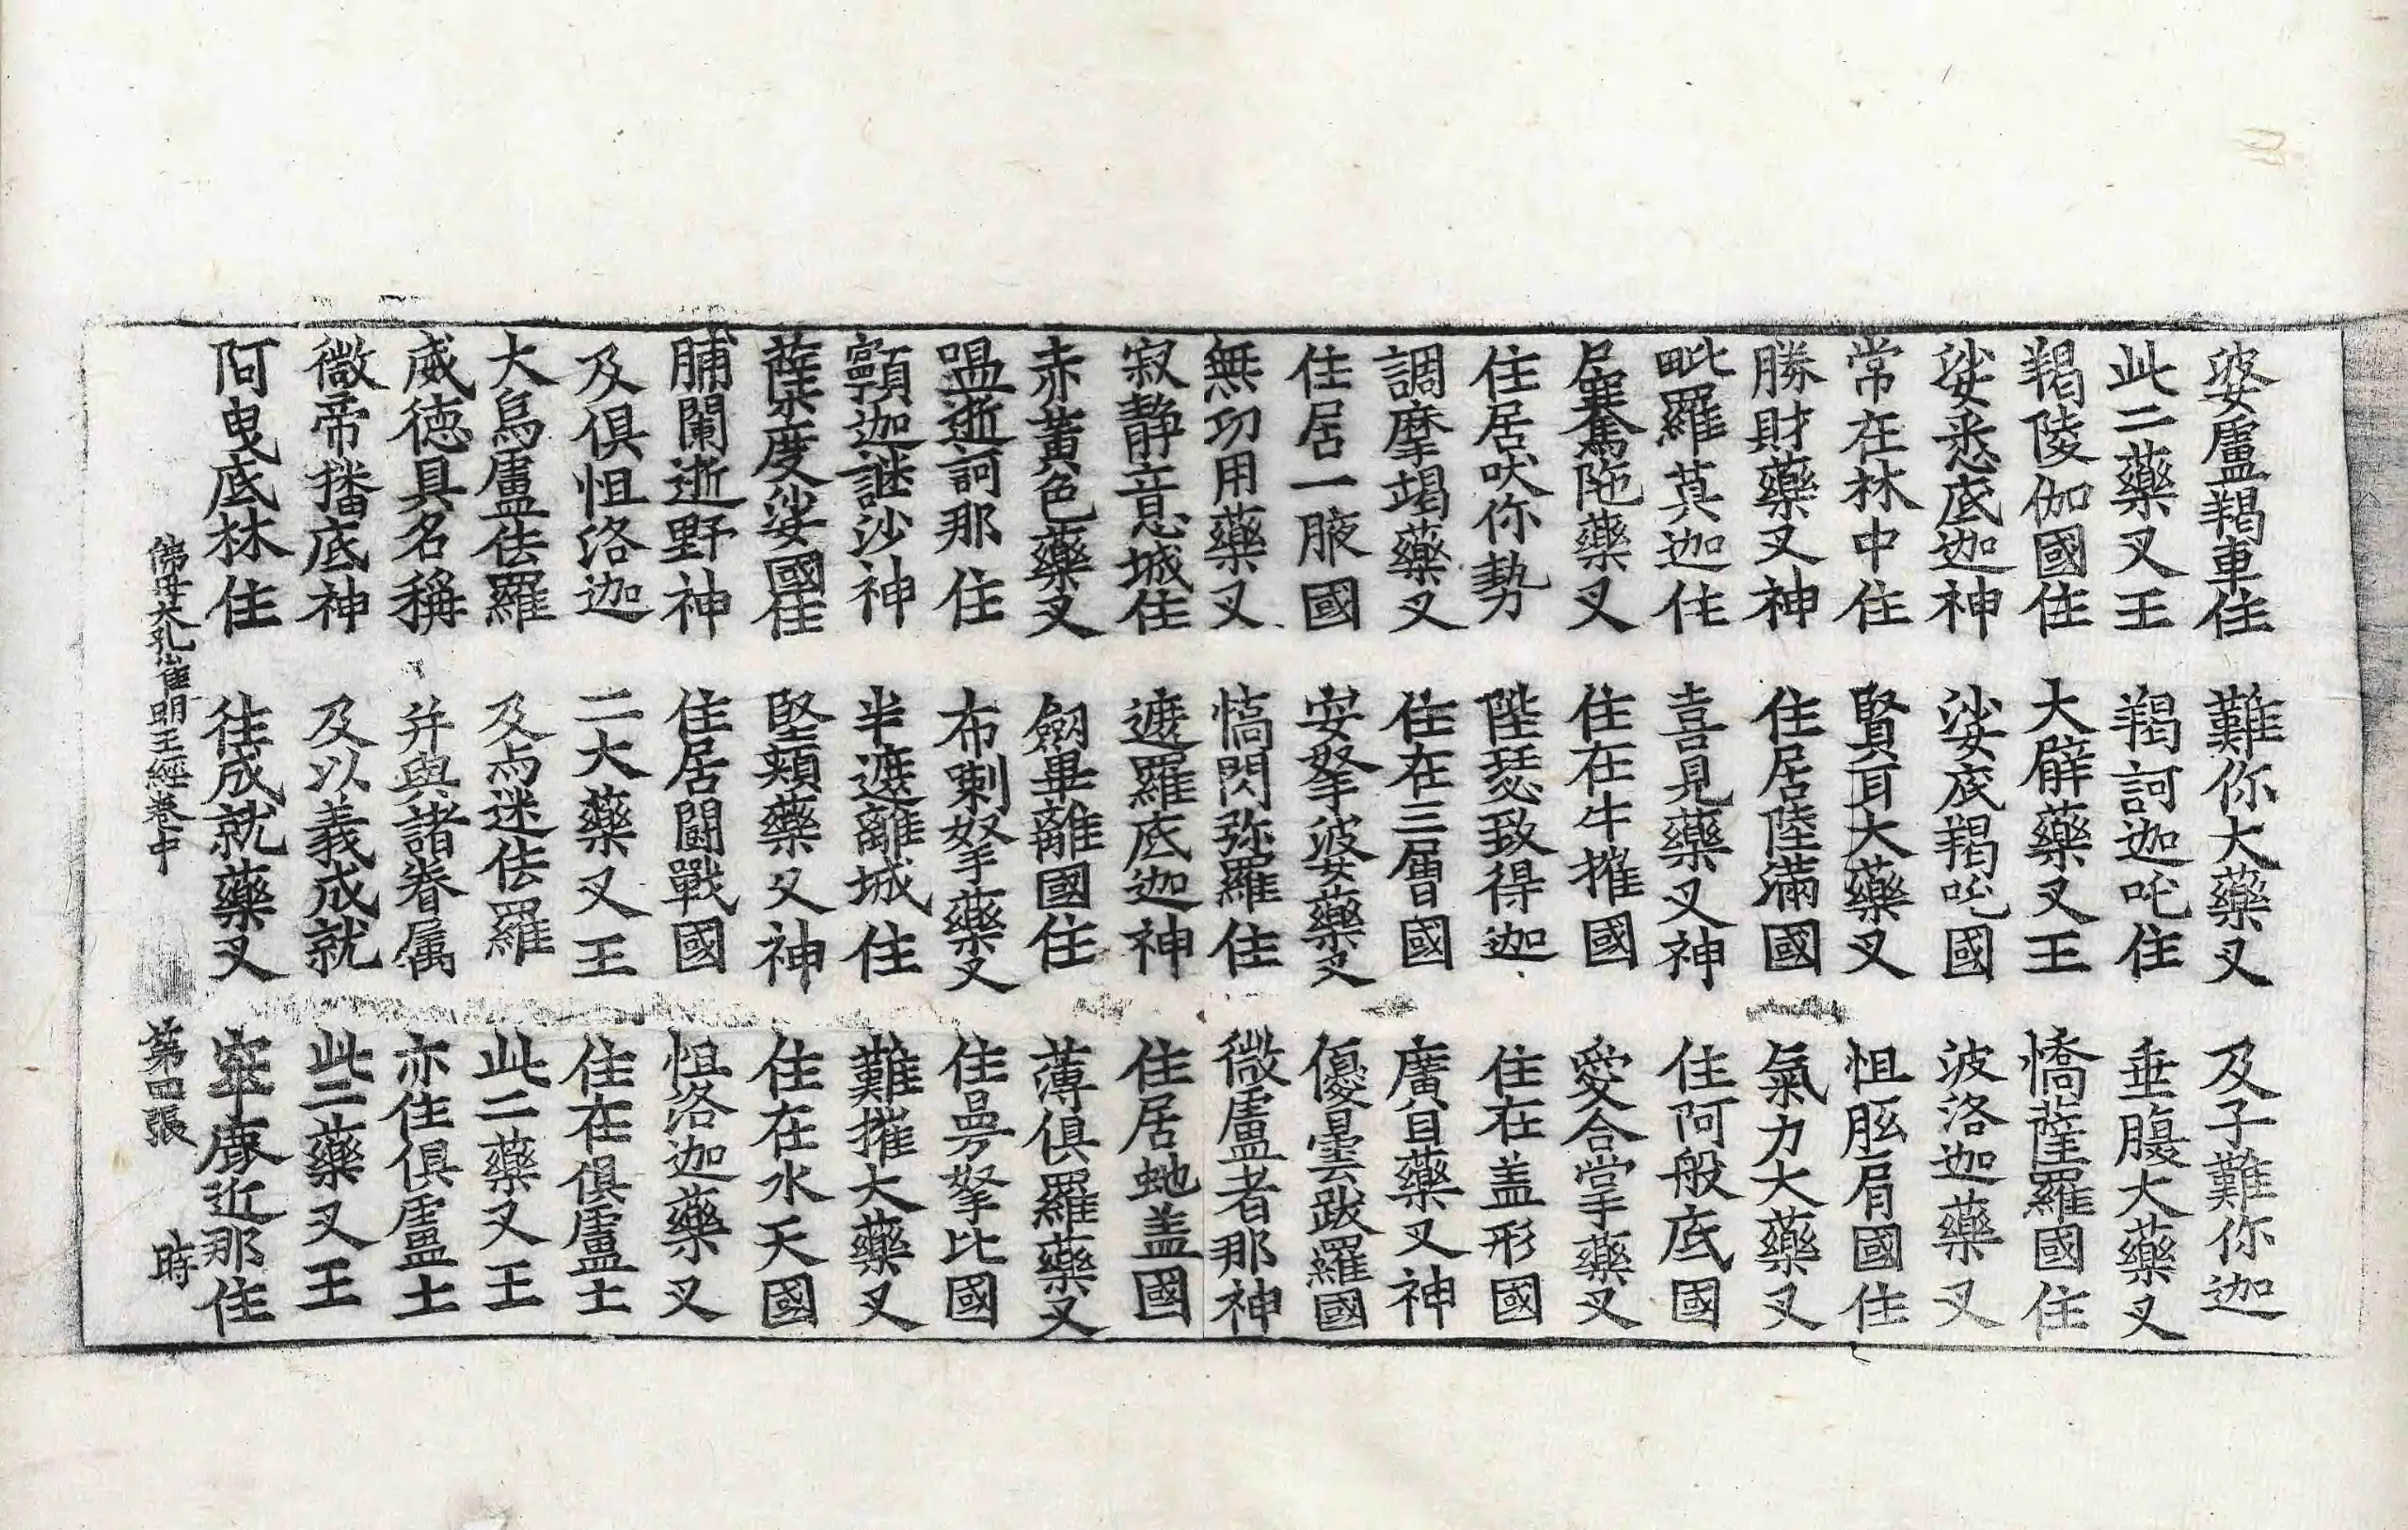 婆盧羯車住　難你大藥叉　及子難你迦
此二藥叉王　羯訶迦吒住　垂腹大藥叉
羯陵伽國住　大臂藥叉王　憍薩羅國住
娑悉底迦神　娑底羯吒國　波洛迦藥叉
常在林中住　賢耳大藥叉　怛胝肩國住
勝財藥叉神　住居陸滿國　氣力大藥叉
毗羅莫迦住　喜見藥叉神　住阿般底國
尸騫馱藥叉　住在牛摧國　愛合掌藥叉
住居吠你勢　陛瑟致得迦　住在盖形國
調摩竭藥叉　住在三層國　廣目藥叉神
住居一腋國　安拏婆藥叉　優曇跋羅國
無功用藥叉　憍閃弥羅住　微盧者那神
寂靜意城住　遮羅底迦神　住居虵盖國
赤黃色藥叉　劒畢離國住　薄俱羅藥叉
嗢逝訶那住　布喇拏藥叉　住曼拏比國
顙迦謎沙神　半遮離城住　難摧大藥叉
薩度娑國住　堅頰藥叉神　住在水天國
脯闌逝野神　住居鬪戰國　怛洛迦藥叉
及俱怛洛迦　二大藥叉王　住在俱盧土
大烏盧佉羅　及與迷佉羅　此二藥叉王
威德具名稱　并與諸眷属　亦住俱盧土
微帝播底神　及以義成就　此二藥叉王
阿曳底林住　往成就藥叉　窣鹿近那住
佛母大孔雀明王經卷中　第四張　時